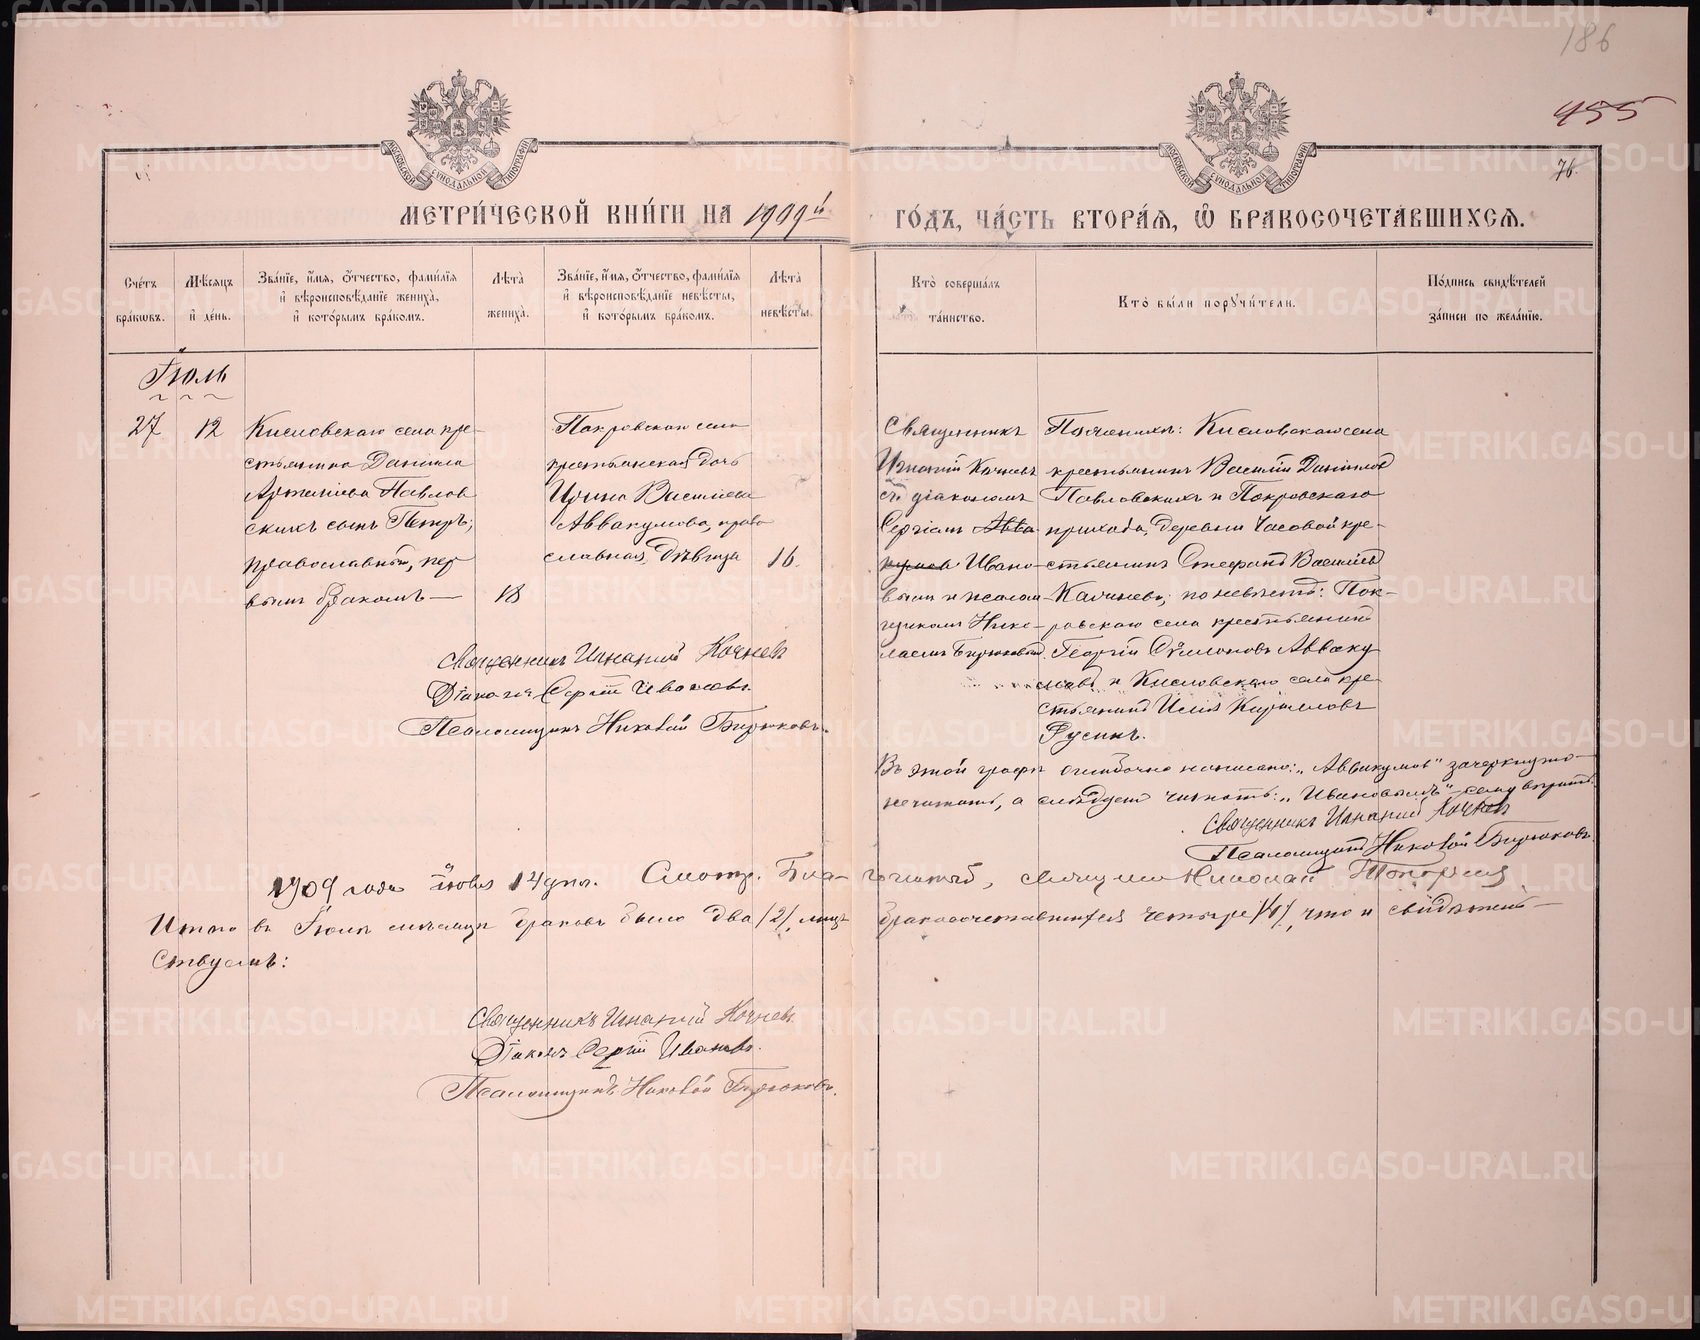 186
455
76.
МОСКОВСКОЙ СѴНОДАЛЬНОЙ ТИПОГРАФІИ
МОСКОВСКОЙ СѴНОДАЛЬНОЙ ТИПОГРАФІИ
МЕТРИ́ЧЕСКОЙ КНИ́ГИ НА 1909й
ГО́ДЪ, ЧА́СТЬ ВТОРА́Я, Ѽ БРАКОСОЧЕТА́ВШИХСЯ.
Сче́тъ бра́кѡвъ.
Мѣ́сяцъ и҆ де́нь.
Зва́нїе, и҆́мя, ѻ҆́тчество, фами́лїя и҆ вѣроисповѣ́данїе жениха̀, и҆ кото́рымъ бра́комъ.
Лѣ́та жениха̀.
Зва́нїе, и҆́мя, ѻ҆́тчество, фами́лїя и҆ вѣроисповѣ́данїе невѣ́сты, и҆ кото́рымъ бра́комъ.
Лѣ́та невѣ́сты.
Кто̀ соверша́лъ та́инство.
Кто̀ бы́ли порꙋчи́тели.
По́дпись свидѣ́телей за́писи по жела́нїю.
Іюль
27
12
Кисловскаго села кре-
стьянина Даніила
Павлов
скихъ сынъ Петръ,
православный, пер
вымъ бракомъ —
18
Покровскаго села
крестьянская дочь
Ирина Васильева
Аввакумова, право
славная, дѣвица
16.
Священникъ
Игнатій Кочневъ
съ діакономъ
Сергіемъ Авва
кумов Ивано-
вымъ и псалом-
щикомъ Нико-
лаемъ Бирюковымъ.
По женихѣ: Кисловскаго села
крестьянинъ Василій Даніилов
Павловскихъ и Покровскаго
прихода, деревни Часовой кре-
стьянинъ Стефанъ Васильев
по невѣстѣ: Пок-
ровскаго села крестьянинъ
Георгій Сѵмеоновъ Авваку
мовъ и Кисловскаго села кре-
стьянинъ Илія Кириллов
Русинъ.
Священникъ Игнатій Кочневъ
Діаконъ Сергій Ивановъ.
Псаломщикъ Николай Бирюковъ.
Въ этой графѣ ошибочно написано: „Аввакумов" зачеркнуто-
не читать, а слѣдует читать: „Ивановымъ" — сему вѣрить.
Священникъ Игнатій Кочнев
Псаломщикъ Николай Бирюковъ.
1909 года Іюля 14 дня. Смотр. Бла-гочинный, священникъ Николай Топорковъ
Итого въ Іюлѣ мѣсяцѣ браковъ было два /2/, лицъ бракосочетавшихся четыре /4/, что и свидѣтель-
ствуемъ:
Священникъ Игнатій Кочневъ.
Діаконъ Сергій Ивановъ.
Псаломщикъ Николай Бирюковъ.
METRIKI.GASO-URAL.RU